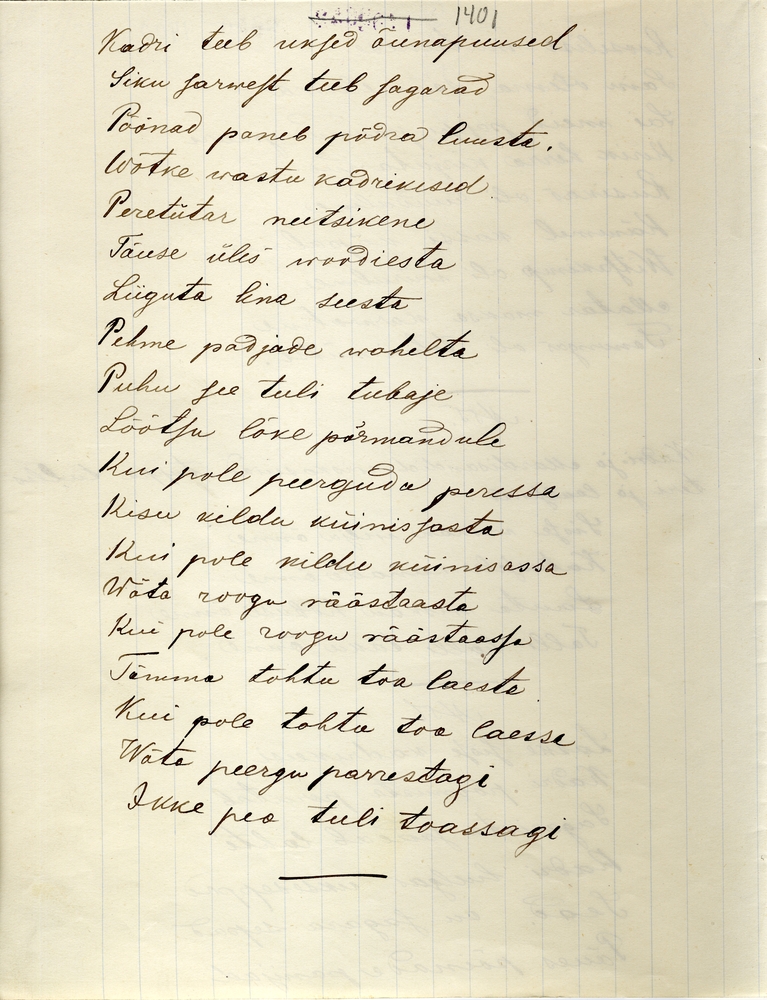 1401
Kadri teeb uksed õunapuused
Siku sarwest teeb sagarad
Pöönad paneb põdra luusta.
Wõtke wastu kadrikesed
Peretütar neitsikene
Tõuse ülis woodiesta
Liiguta lina seesta
Pehme padjade wahelta
Puhu see tuli tubaje
Lõõtsu lõke põrmandule
Kui pole peerguda peressa
Kisu kildu küinissasta
Kui pole kildu küinisassa
Wõta roogu räästaasta
Kui pole roogu räästaassa
Tõmma tohtu toa laesta
Kui pole tohtu toa laesse
Wõta peergu parrestagi
Ikke pea tuli toassagi